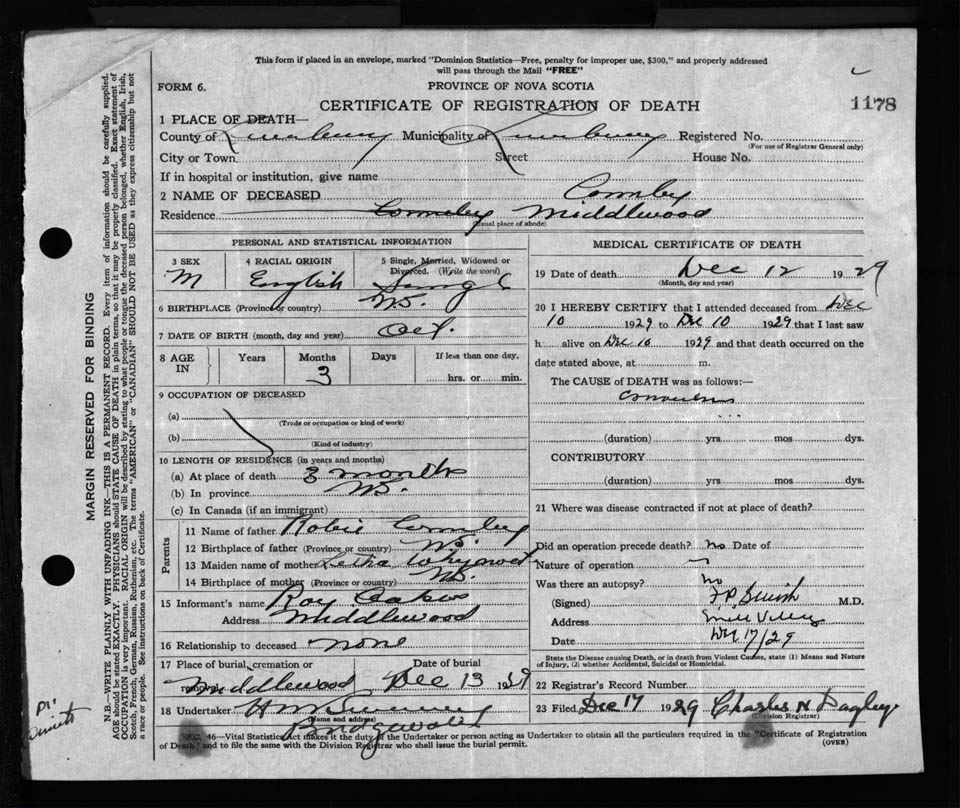 This form if placed in an envelope, marked "Dominion Statistics—Free, penalty for improper use, $300," and properly addressed
will pass through the Mail "FREE"
FORM 6.
PROVINCE OF NOVA SCOTIA
CERTIFICATE OF REGISTRATION OF DEATH
1178
1 PLACE OF DEATH—
County of Lunenburg Municipality of Lunenburg Registered No.
(For use of Registrar General only)
City or Town Street House No.
If in hospital or institution, give name
2 NAME OF DECEASED
Residence Middlewood
(Usual place of abode)
PERSONAL AND STATISTICAL INFORMATION
3 SEX 4 RACIAL ORIGIN 5 Single, Married, Widowed or Divorced. (Write the word)
M English Single
6 BIRTHPLACE (Province or country) N.S.
7 DATE OF BIRTH (month, day and year) Oct.
8 AGE IN Years Months Days If less than one day,
3 hrs. or min.
9 OCCUPATION OF DECEASED
(a)
(Trade or occupation or kind of work)
(b)
(Kind of industry)
10 LENGTH OF RESIDENCE (in years and months)
(a) At place of death 3 months
(b) In province N.S.
(c) In Canada (if an immigrant)
Parents
11 Name of father
12 Birthplace of father (Province or country) N.S.
13 Maiden name of mother Letha
14 Birthplace of mother (Province or country) N.S.
15 Informant's name Roy
Address Middlewood
16 Relationship to deceased none
17 Place of burial, cremation or removal Date of burial
Middlewood Dec 13 1929
18 Undertaker
(Name and address)
Bridgewater
MEDICAL CERTIFICATE OF DEATH
19 Date of death Dec 12 1929
(Month, day and year)
20 I HEREBY CERTIFY that I attended deceased from Dec
10 1929 to Dec 10 1929 that I last saw
h alive on Dec 10 1929 and that death occurred on the
date stated above, at m.
The CAUSE OF DEATH was as follows:—
(duration) yrs mos dys.
CONTRIBUTORY
(duration) yrs mos dys.
21 Where was disease contracted if not at place of death?
Did an operation precede death? no Date of
Nature of operation
Was there an autopsy? no
(Signed) M.D.
Address
Date Dec 17/29
State the Disease causing Death, or in death from Violent Causes, state (1) Means and Nature
of Injury, (2) whether Accidental, Suicidal or Homicidal.
22 Registrar's Record Number
23 Filed Dec 17 1929 Charles N Dagley
(Division Registrar)
SEC. 46—Vital Statistics Act makes it the duty of the Undertaker or person acting as Undertaker to obtain all the particulars required in the "Certificate of Registration
of Death" and to file the same with the Division Registrar who shall issue the burial permit.
(OVER)
MARGIN RESERVED FOR BINDING
N.B.—WRITE PLAINLY WITH UNFADING INK—THIS IS A PERMANENT RECORD. Every item of information should be carefully supplied.
AGE should be stated EXACTLY. PHYSICIANS should STATE CAUSE OF DEATH in plain terms, so that it may be properly classified. Exact statement of
OCCUPATION is very important. RACIAL ORIGIN will be described by stating to what people or tongue the deceased person belonged, whether English, Irish,
Scotch, French, German, Russian, Ruthenian, etc. The terms "AMERICAN" or "CANADIAN" SHOULD NOT BE USED as they express citizenship but not
a race or people. See instructions on back of Certificate.